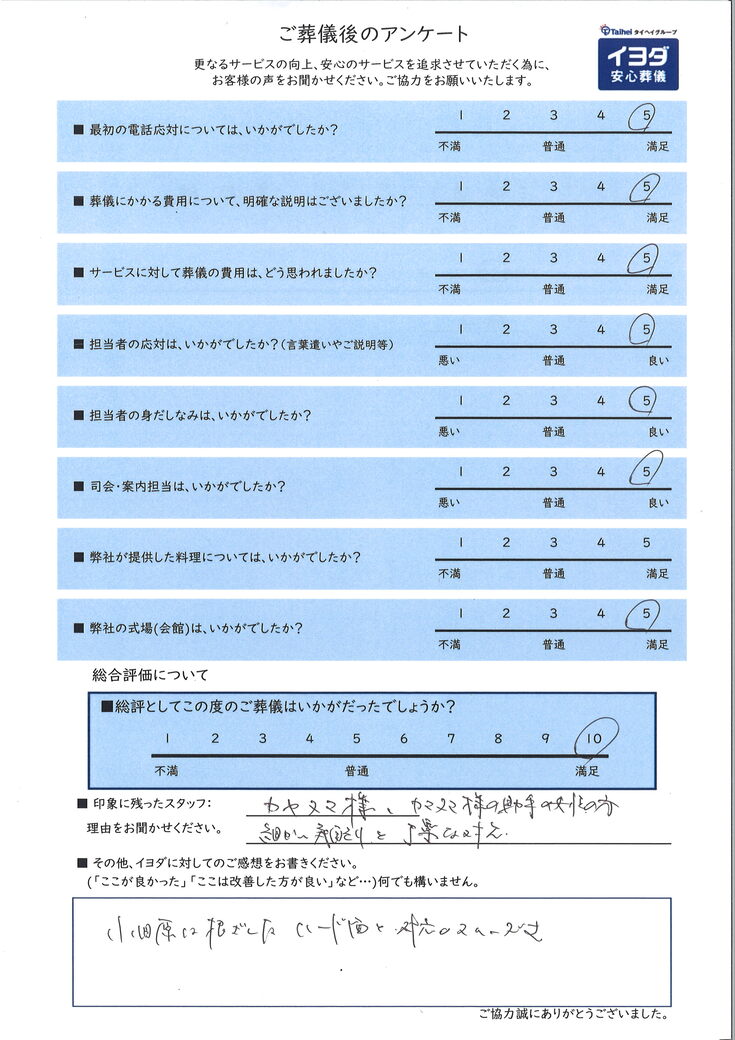 ご葬儀後のアンケート
Taihei タイヘイグループ
イヨダ
安心葬儀
更なるサービスの向上、安心のサービスを追求させていただく為に、
お客様の声をお聞かせください。ご協力をお願いいたします。
■ 最初の電話応対については、いかがでしたか?
1 2 3 4 5
不満 普通 満足
■ 葬儀にかかる費用について、明確な説明はございましたか?
1 2 3 4 5
不満 普通 満足
■ サービスに対して葬儀の費用は、どう思われましたか?
1 2 3 4 5
不満 普通 満足
■ 担当者の応対は、いかがでしたか?(言葉遣いやご説明等)
1 2 3 4 5
悪い 普通 良い
■ 担当者の身だしなみは、いかがでしたか?
1 2 3 4 5
悪い 普通 良い
■ 司会・案内担当は、いかがでしたか?
1 2 3 4 5
悪い 普通 良い
■ 弊社が提供した料理については、いかがでしたか?
1 2 3 4 5
不満 普通 満足
■ 弊社の式場(会館)は、いかがでしたか?
1 2 3 4 5
不満 普通 満足
総合評価について
■総評としてこの度のご葬儀はいかがだったでしょうか?
1 2 3 4 5 6 7 8 9 10
不満 普通 満足
■ 印象に残ったスタッフ: カヤヌマ様、カヤヌマ様の助手の女性の方
理由をお聞かせください。 細かい気配りと丁寧な対応
■ その他、イヨダに対してのご感想をお書きください。
(「ここが良かった」「ここは改善した方が良い」など…)何でも構いません。
小田原に根ざした ハード面と対応のスムーズさ
ご協力誠にありがとうございました。